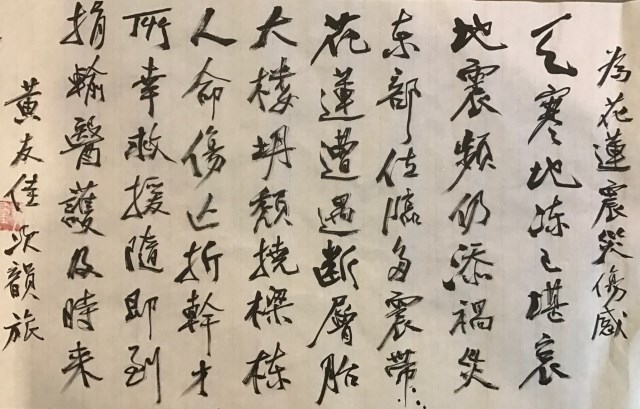 為花蓮震災傷感
天寒地冻已堪哀
地震頻仍添禍災
東部位臨多震帶
花蓮遭遇断層胎
大樓坍頹撓樑栋
人命傷亡折幹才
所幸救援隨即到
捐輸醫護及時来
黃友佳次韻旅